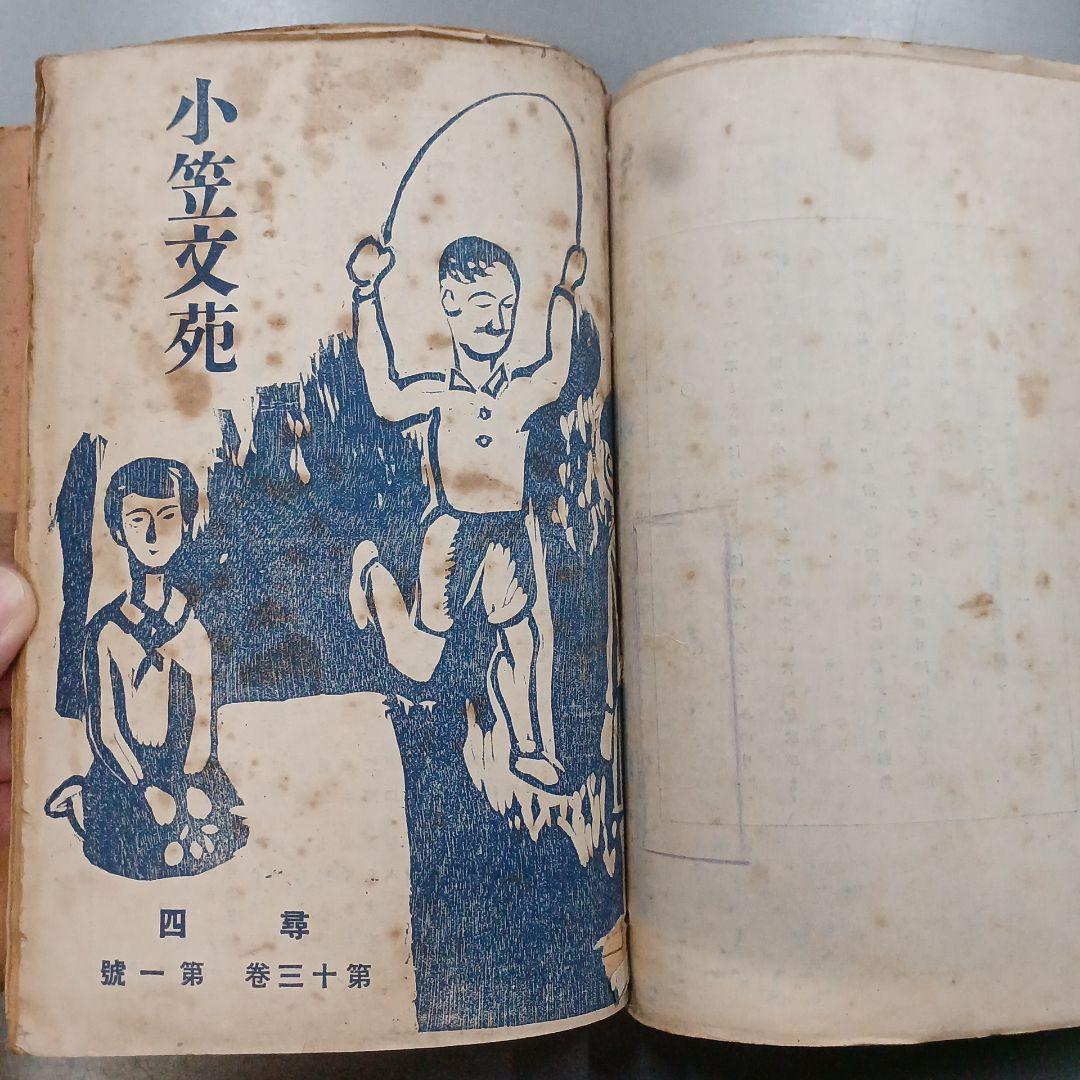 小笠文苑
尋四
第十三卷 第一號